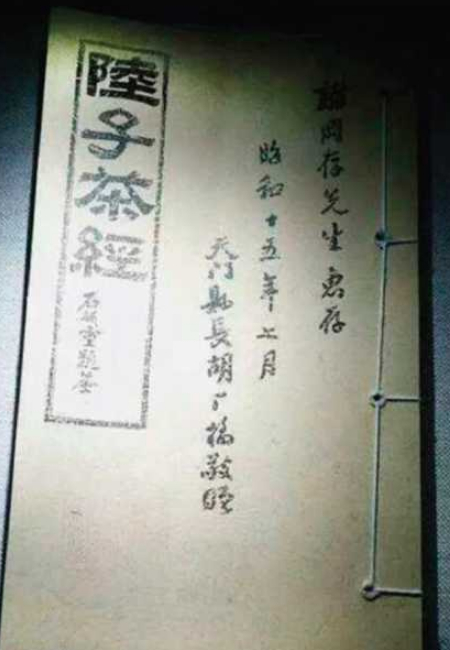 諸岡存先生惠存
昭和十五年月
天門縣長胡橋敬贈
陸子茶經
石堂題簽